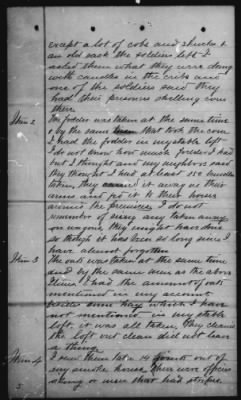 except a lot of cobs and shucks &
an old sack the soldiers left I
asked them what they were doing
with candles in the crib and
one of the soldiers said they
had their prisoners shelling corn
there.
Item 2 The fodder was taken at the same time
& by the same men that took the corn
I had the fodder in my stable loft
I do not know how much fodder I had
but I thought and my neighbors said
they thought I had at least 150 bundles
taken, they carried it away in their
arms and fed it to their horses
around the premises I do not
remember of seeing any taken away
on wagons, they might have done
so though it has been so long since I
have almost forgotten.
Item 3 The oats was taken at the same time
and by the same men as the above
Items, I had the amount of oats
mentioned in my account
besides some hay which I have
not mentioned in my stable
loft, it was all taken, they cleaned
the loft out clean did not leave
a thing.
Item 4 I seen them take 14 joints out of
my smoke house, there were officers
along or men that had stripes
5